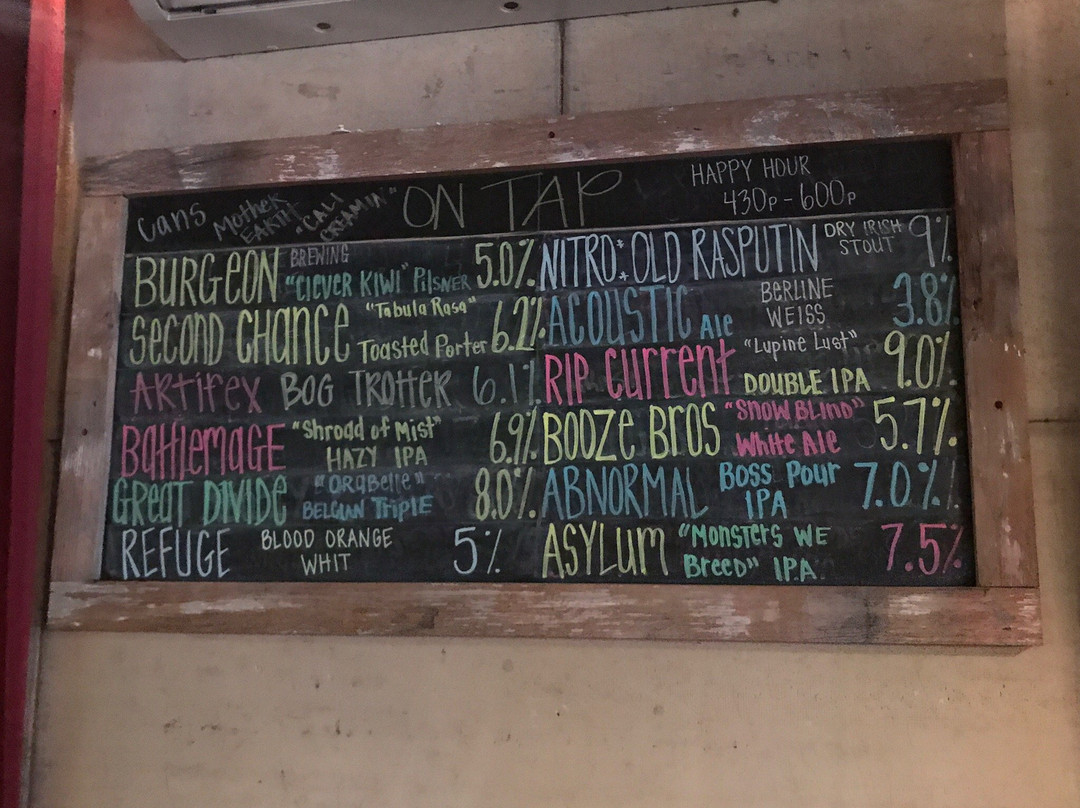 Cans Mother Earth "Cali Creamin'"
ON TAP
HAPPY HOUR
430p - 600p
BURGEON BREWING "Clever Kiwi" Pilsner 5.0%
Second Chance "Tabula Rasa" Toasted Porter 6.2%
Artifex BOG TROTTER 6.1%
Battlemage "Shroad of Mist" HAZY IPA 6.9%
GREAT DIVIDE "Orabelle" BELGIAN TRIPLE 8.0%
REFUGE BLOOD ORANGE WHIT 5%
NITRO: OLD RASPUTIN DRY IRISH STOUT 9%
ACOUSTIC Ale BERLINE WEISS 3.8%
RIP Current "Lupine Lust" DOUBLE IPA 9.0%
BOOZE BROS "SNOW BLIND" White Ale 5.7%
ABNORMAL Boss Pour IPA 7.0%
ASYLUM "Monsters We Breed" IPA 7.5%